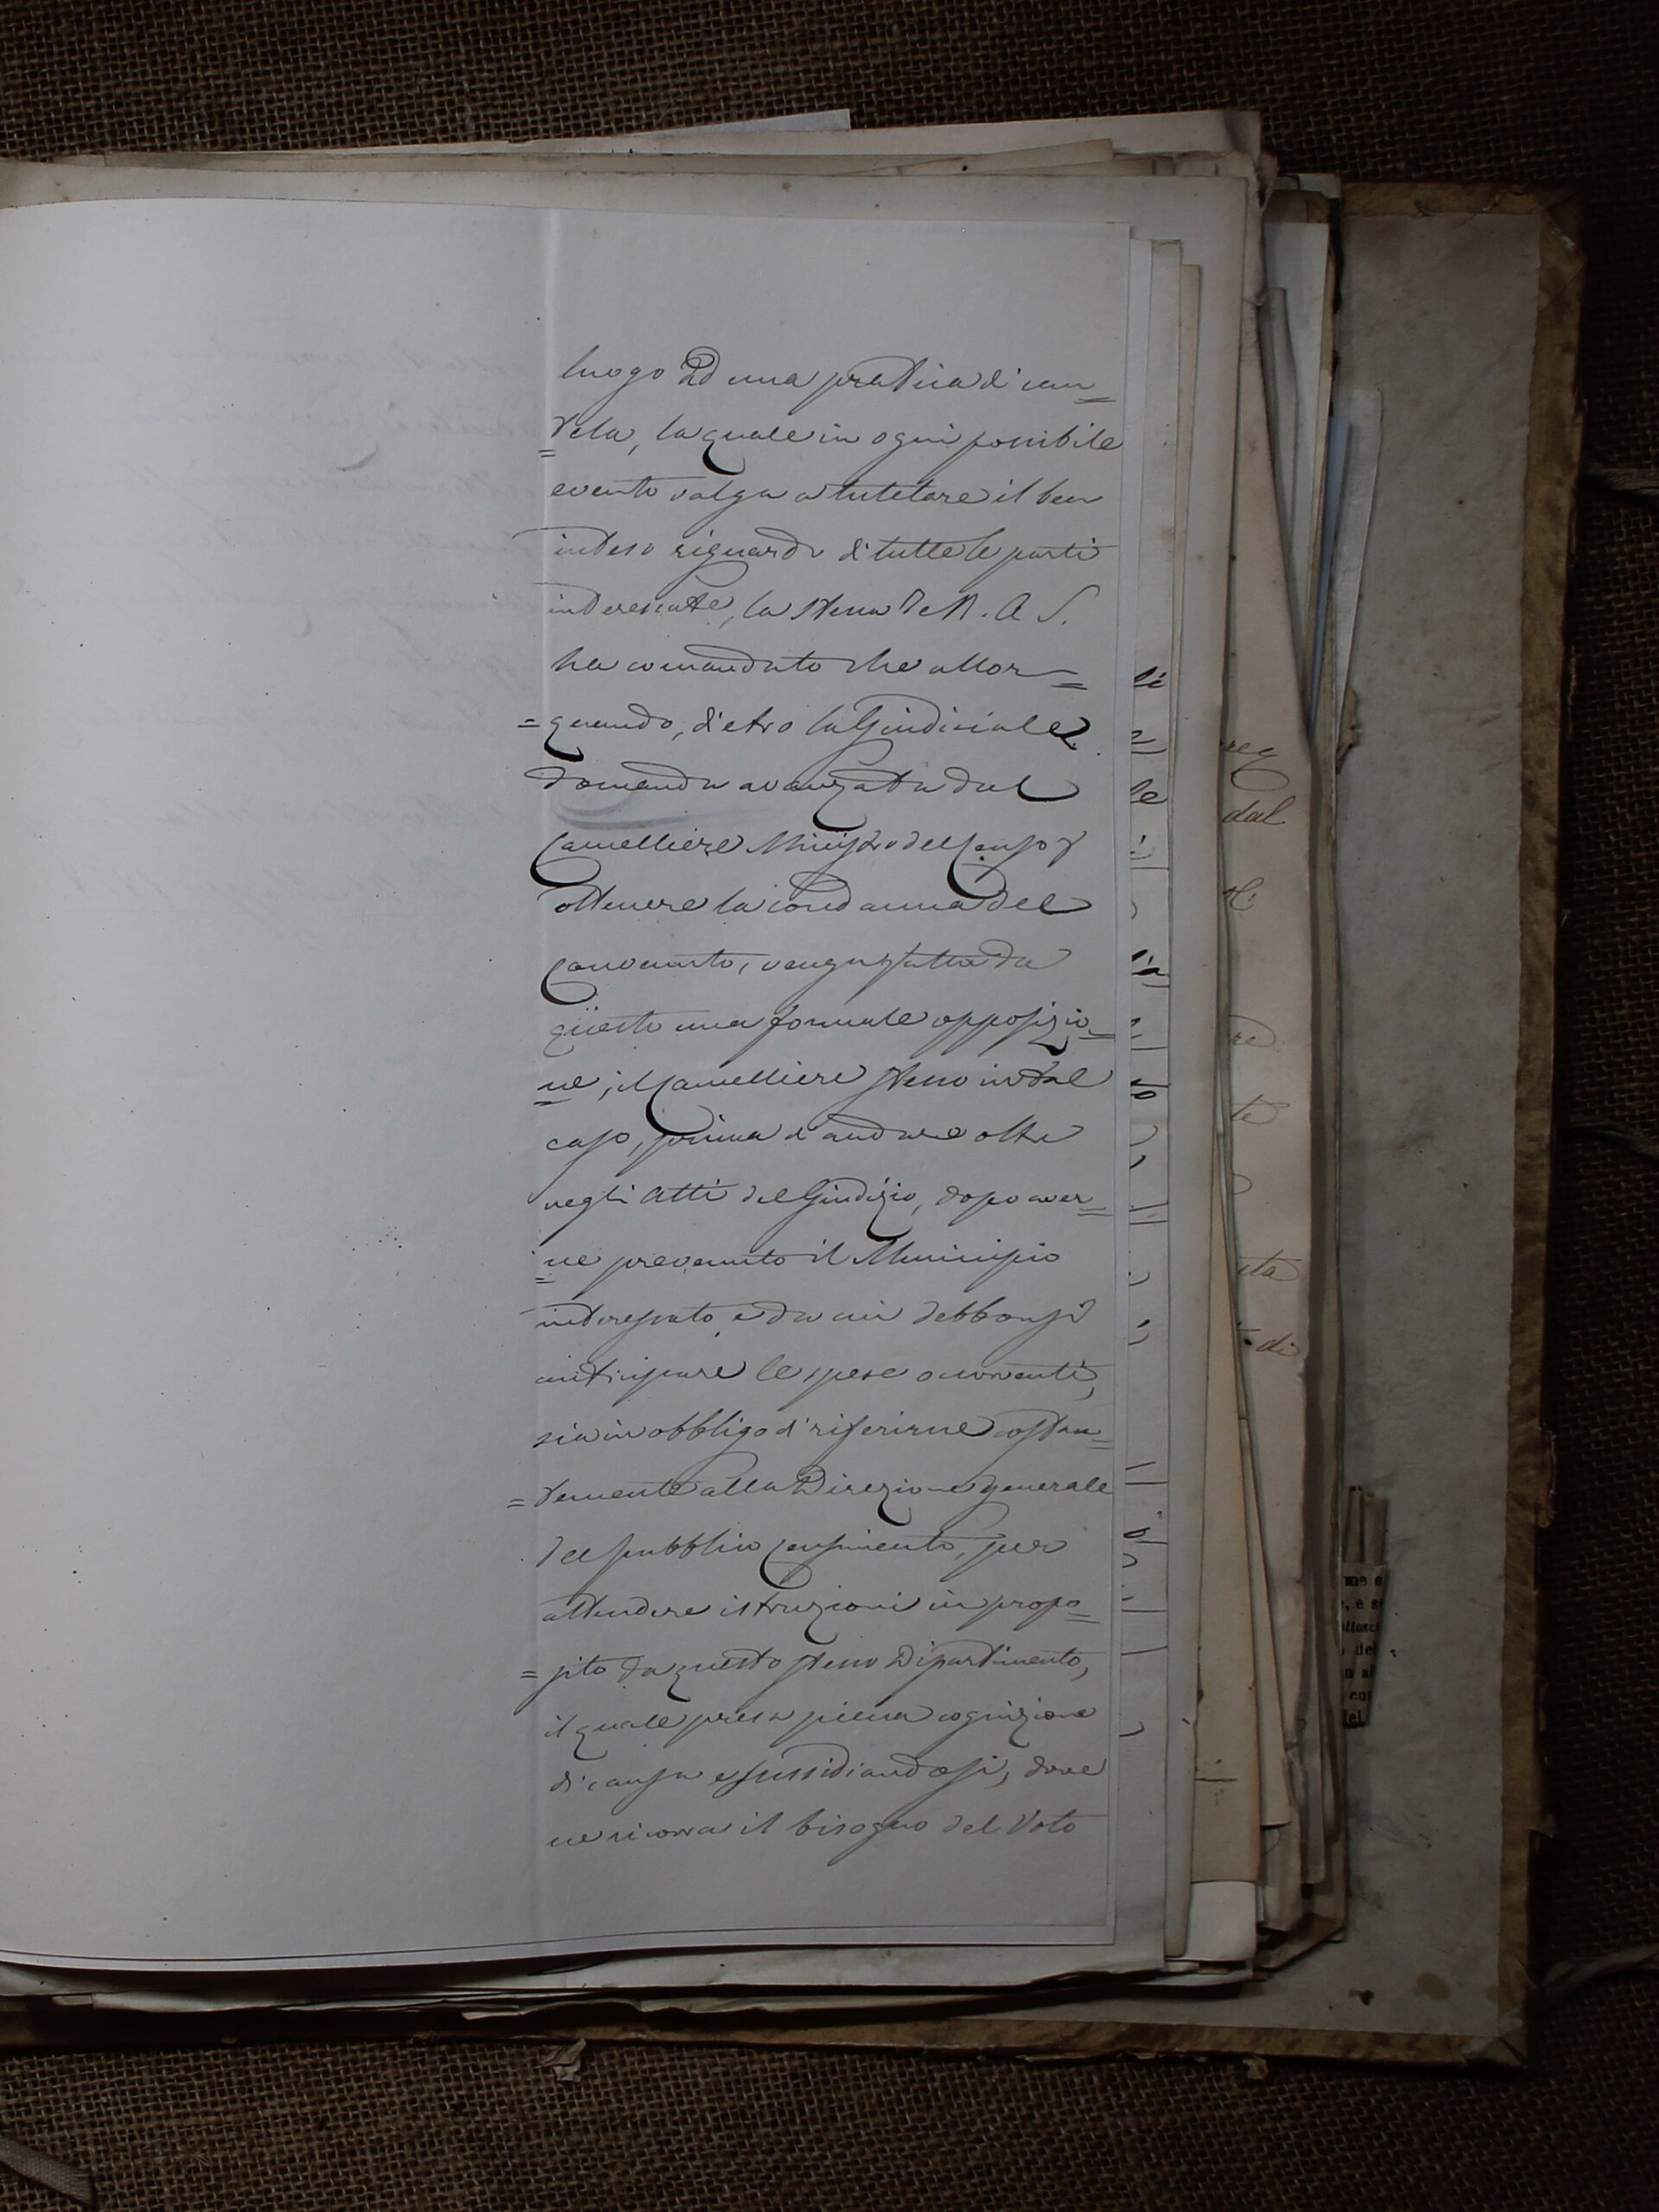 luogo ad una pratica di cau=
=tela, la quale in ogni possibile
evento valga a tutelare il ben
inteso riguardo di tutte le parti
interessate, la stessa De R. A S.
ha comandato che allor=
=quando, dietro la Giudiziale
domanda avanzata dal
Cancelliere Ministro del Censo p
ottenere la condanna del
Convenuto, venga fatta da
questo una formale opposizio=
=ne, il Cancelliere stesso in tal
caso, prima d'andare oltre
negli Atti del Giudizio, dopo aver=
=ne prevenuto il Municipio
interessato, e da cui debbonsi
anticipare le spese occorrenti,
sia in obbligo di riferirne costan=
=temente alla Direzione generale
del pubblico Censimento, per
attendere istruzioni in propo=
=sito da questo stesso Dipartimento,
il quale presa piena cognizione
di causa e sussidiandosi, dove
ne ricorra il bisogno del Voto
li
le
dal
di